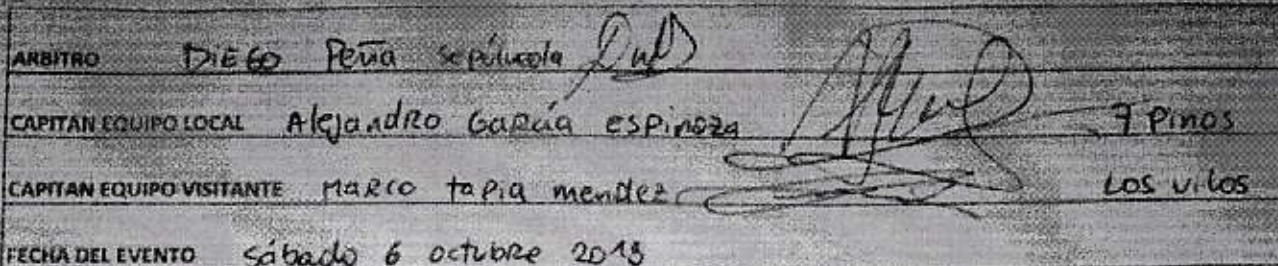 ARBITRO DIEGO Peña sepúlveda
CAPITAN EQUIPO LOCAL Alejandro García espinoza 7 Pinos
CAPITAN EQUIPO VISITANTE MARCO tapia mendez Los vilos
FECHA DEL EVENTO sábado 6 octubre